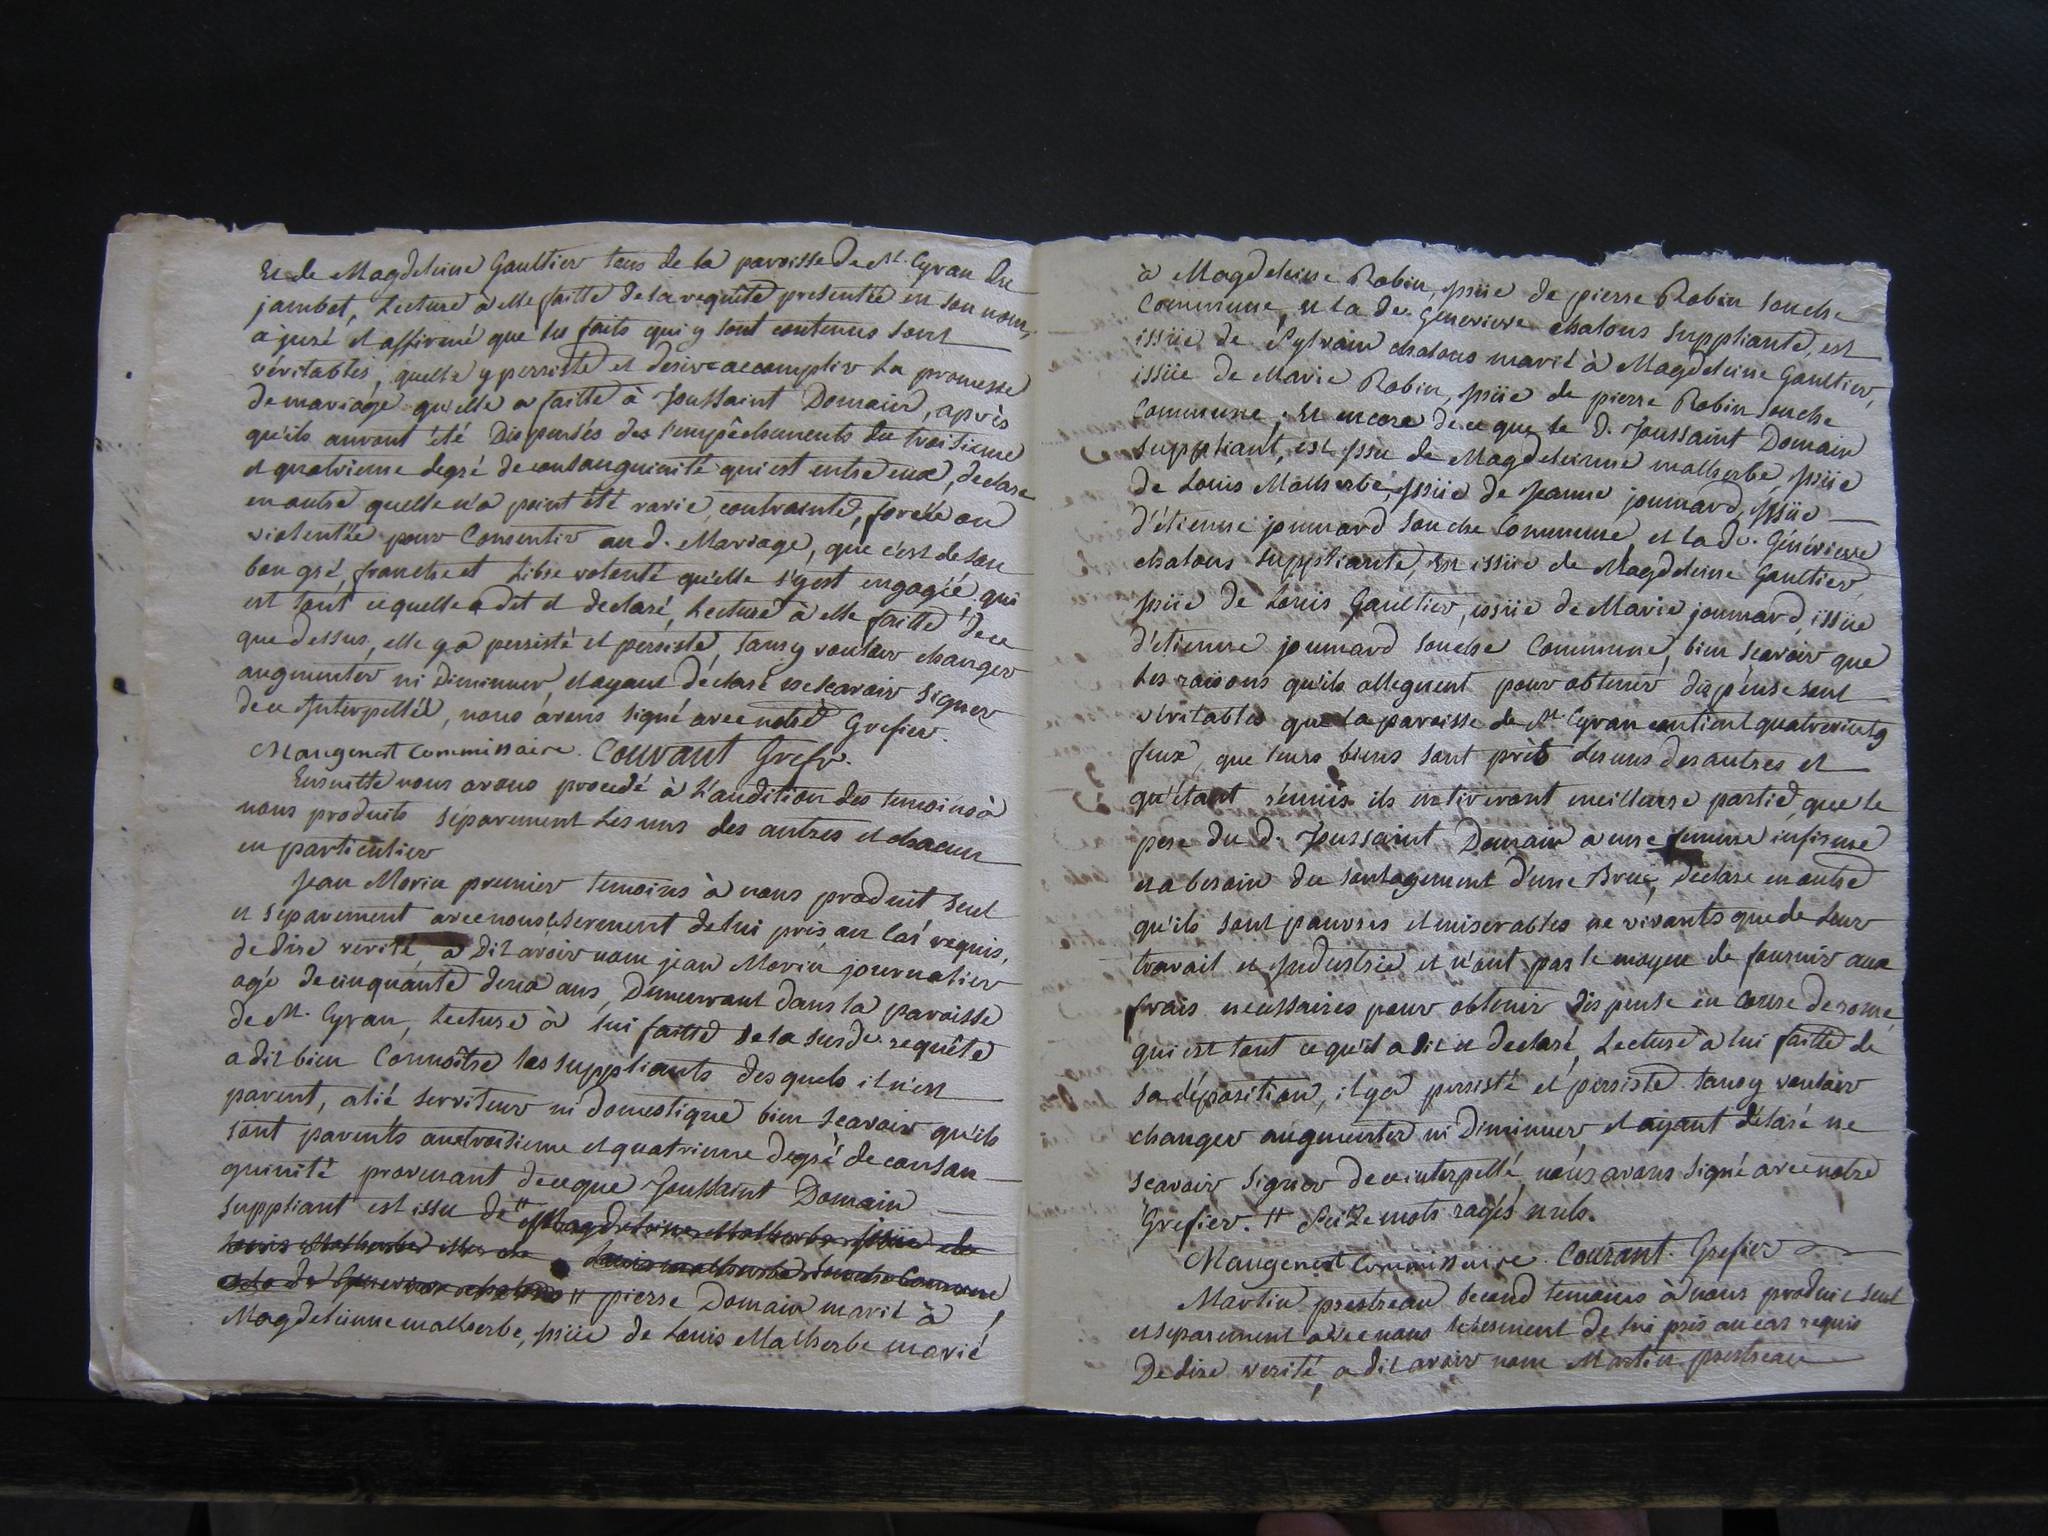 Et de Magdeleine Gaultier tous de la paroisse de St. Cyran du
jambot, Lecture a elle faitte de la requête presentée en son nom,
a juré et affirmé que les faits qui y sont contenus sont
véritables, quelle y persiste et desire accomplir la promesse
de mariage qu'elle a faitte à Joussaint Domain, après
qu'ils auront été Dispensés des Empêchements du troisieme
et quatrieme degré de consanguinité qui est entre eux, declare
en outre quelle n'a point été ravie, contrainte, forcée ou
violentée pour Consentir au d. Mariage, que c'est de son
bon gré, franche et Libre volonté qu'elle s'y est engagée, qui
est tout ce quelle a dit et declaré, Lecture à elle faitte de ce
que dessus, elle y a persisté et persiste, sans y vouloir changer
augmenter ni Diminuer, et ayant déclaré ne scavoir signer
de ce Interpellée, nous avons signé avec notre Grefier.
Maugenest Commissaire. Courant Grefr.
Ensuitte nous avons procedé à L'audition des temoins à
nous produits séparement Les uns des autres et chacun
en particulier
Jean Morin premier temoins à nous produit seul
et séparement avec nous le serment de lui pris au cas requis,
de dire verité, a Dit avoir nom jean Morin journalier
agé de cinquante deux ans, Demeurant dans la paroisse
de St. Cyran, Lecture à lui faitte de la susde. requête
a dit bien Connoître les suppliants desquels il n'est
parent, alié serviteur ni domestique bien scavoir qu'ils
sont parents au troisieme et quatrieme degré de consan-
guinité provenant de ce que Joussaint Domain
suppliant est issu de " Magdeleine Malherbe issüe de
Louis Malherbe issu de Louis malherbe souche Commune
et la de Genevieve chalons " pierre Domain marié à
Magdeleinne malherbe, issüe de Louis Malherbe marié
à Magdeleine Robin, issüe de pierre Robin souche
Commune, et la de. Genevieve chalons suppliante, est
issüe de Sylvain chalons marié à Magdeleine Gaultier,
issüe de Marie Robin, issüe de pierre Robin souche
Commune, Et encore de ce que le d. Joussaint Domain
suppliant, est issu de Magdeleinne malherbe issüe
de Louis Malherbe, issüe de Jeanne joumard, issüe
d'étienne joumard souche Commune et la de. Génévieve
chalons suppliante, Est issüe de Magdeleine Gaultier
issüe de Louis Gaultier, issüe de Marie joumard, issüe
d'étienne joumard souche Commune, bien scavoir que
Les raisons qu'ils alleguent pour obtenir dispense sont
véritables que la paroisse de St Cyran contient quatrevingts
feux, que leurs biens sont près les uns des autres et
qu'étant réunis ils en tireront meilleure partie, que le
pere du d. Joussaint Domain a une femme infirme
et a besoin du soulagement d'une Bruc, declare en outre
qu'ils sont pauvres et miserables ne vivants que de leur
travail et Industrie et n'ont pas le moyen de fournir aux
frais necessaires pour obtenir dispense en cour de rome,
qui est tout ce qu'il a dit et declaré, Lecture à lui faitte de
sa déposition, il y a persisté et persiste sans y vouloir
changer augmenter ni Diminuer, et ayant déclaré ne
scavoir signer de ce interpellé nous avons signé avec notre
Grefier. " Seize mots rayés nuls.
Maugenest Commissaire. Courant Grefier
Martin prestreau second temoins à nous produit seul
et séparement avec nous le serment de lui pris au cas requis
De dire verité, a dit avoir nom Martin prestreau